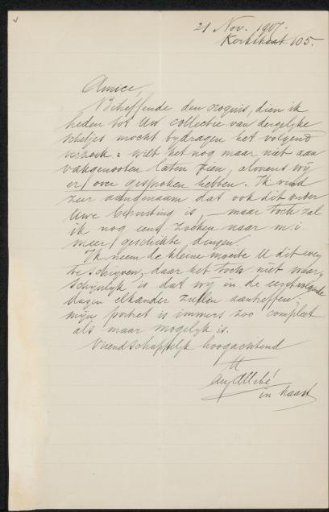 21 Nov. 1907.
Kerkstraat 105.
Amice,
Betreffende den croquis, dien ik
heden tot Uw collectie van dergelijke
schetsjes mocht bydragen het volgend
verzoek: wilt het nog maar niet aan
vakgenooten laten zien, alvorens wy
er over gesproken hebben. Ik vind
zeer aangenaam dat ook dit onder
Uwe berusting is, — maar toch zal
ik nog eens zoeken naar m.i.
meer geschikte dingen.
Ik neem de kleine moeite U dit even
te schryven, daar het toch niet waar-
schynlyk is dat wy in de eerstvolgende
dagen elkander zullen aantreffen;
myn portret is immers zoo compleet
als maar mogelyk is.
Vriendschappelyk hoogachtend
Aug Allebé
in haast